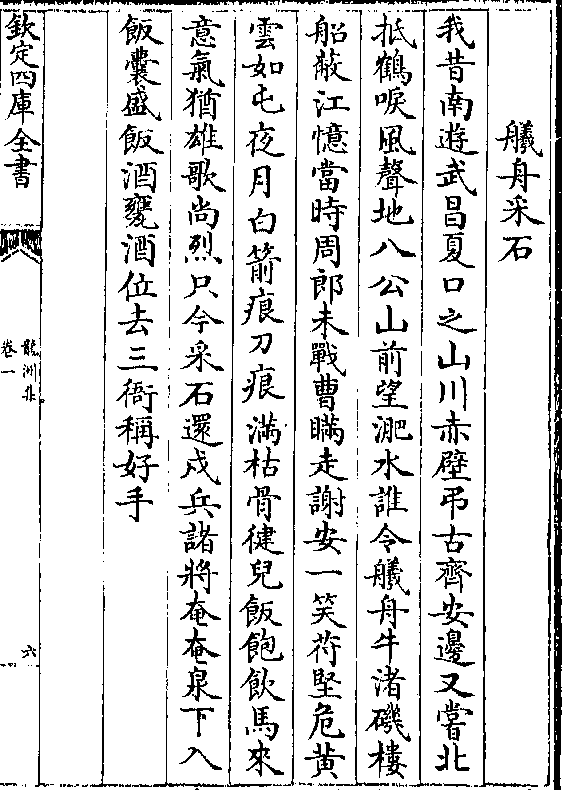 艤舟采石
我昔南遊武昌夏口之山川赤壁弔古齊安邊又嘗北
抵鶴唳風聲地八公山前望淝水誰令艤舟牛渚磯樓
船蔽江憶當時周郎未戰曹瞞走謝安一笑苻堅危黄
雲如屯夜月白箭痕刀痕滿枯骨健兒飯飽飲馬來
意氣猶雄歌尚烈只今采石還戍兵諸將奄奄泉下人
飯囊盛飯酒甕酒位去三衙稱好手
欽定四庫全書
龍洲集
卷一
六